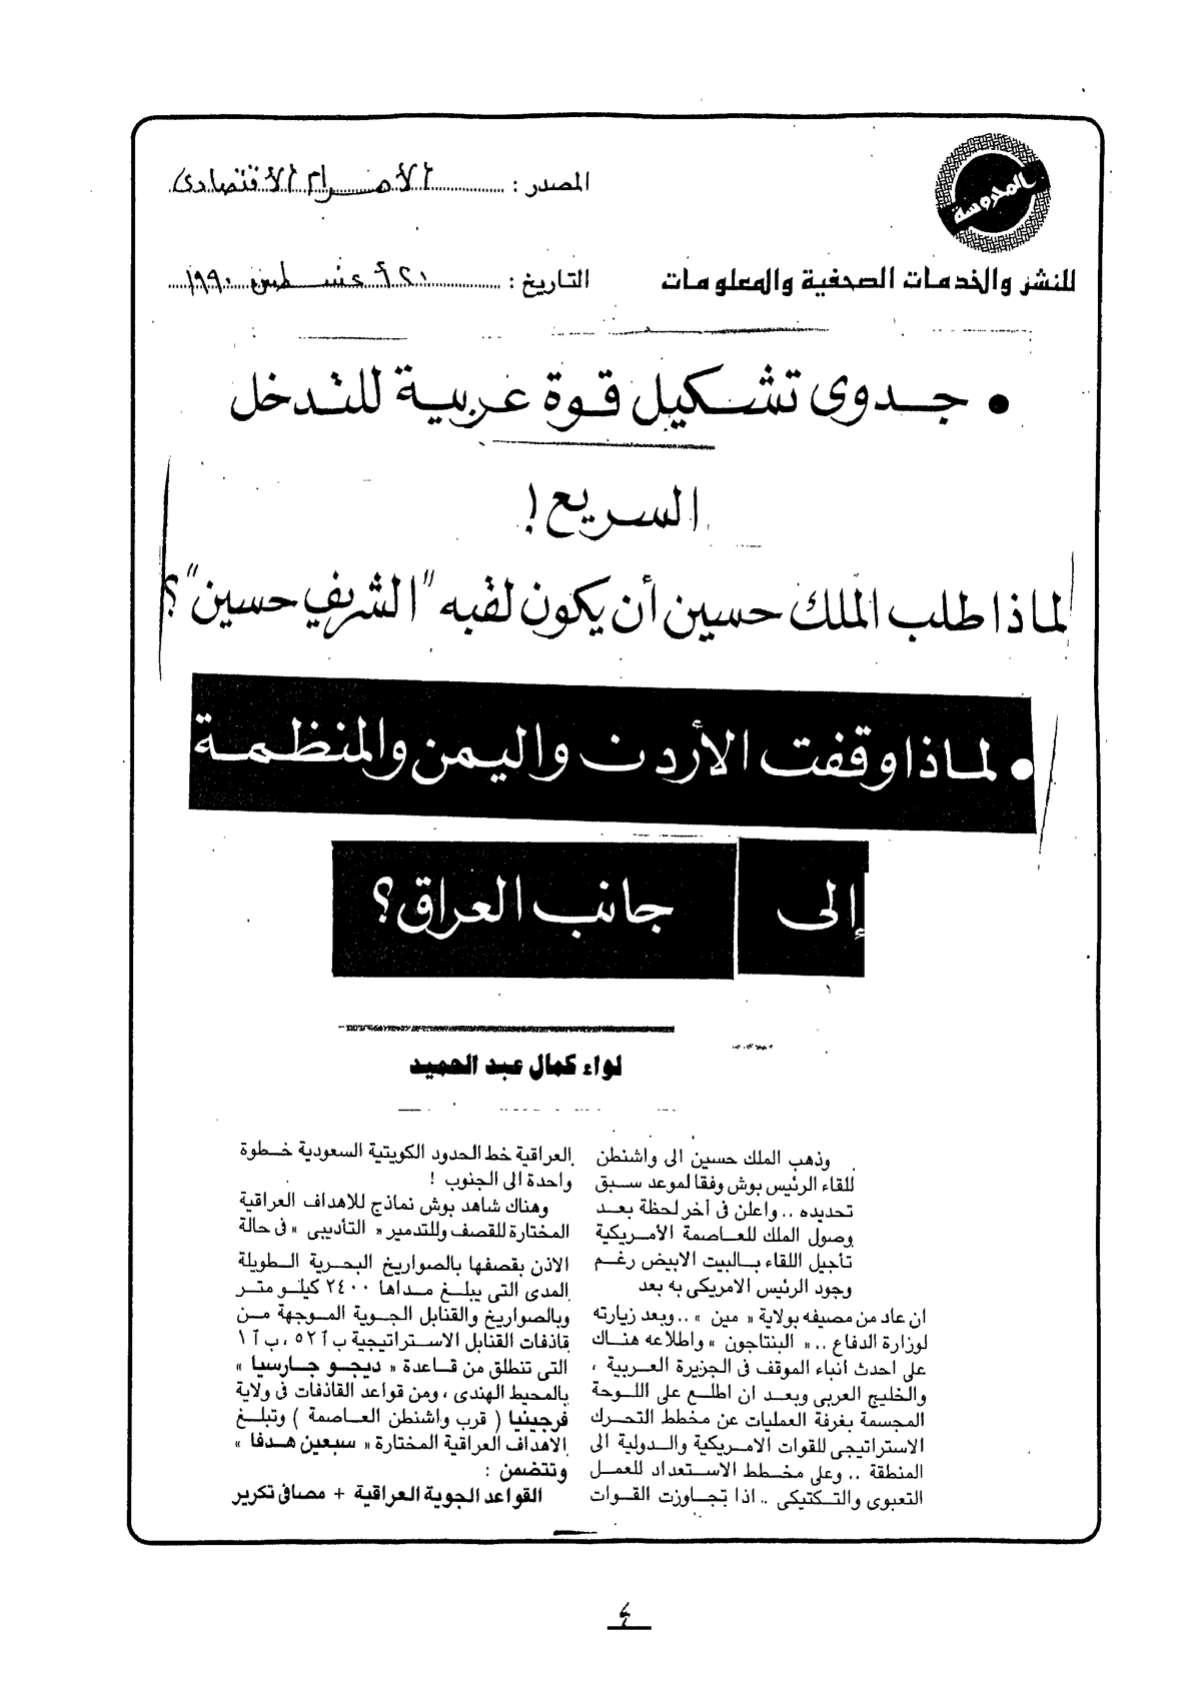 المحروسة
المصدر : الأهرام الاقتصادى
للنشر والخدمات الصحفية والمعلومات
التاريخ : ٢٠ أغسطس ١٩٩٠
• جدوى تشكيل قوة عربية للتدخل
السريع !
لماذا طلب الملك حسين أن يكون لقبه "الشريف حسين" ؟
• لماذا وقفت الأردن واليمن والمنظمة
إلى جانب العراق ؟
لواء كمال عبد الحميد
وذهب الملك حسين الى واشنطن
للقاء الرئيس بوش وفقا لموعد سبق
تحديده .. واعلن فى أخر لحظة بعد
وصول الملك للعاصمة الأمريكية
تأجيل اللقاء بالبيت الابيض رغم
وجود الرئيس الامريكى به بعد
ان عاد من مصيفه بولاية « مين » .. وبعد زيارته
لوزارة الدفاع .. « البنتاجون » واطلاعه هناك
على احدث انباء الموقف فى الجزيرة العربية ،
والخليج العربى وبعد ان اطلع على اللوحة
المجسمة بغرفة العمليات عن مخطط التحرك
الاستراتيجى للقوات الامريكية والدولية الى
المنطقة .. وعلى مخطط الاستعداد للعمل
التعبوى والتكتيكى .. اذا تجاوزت القوات
العراقية خط الحدود الكويتية السعودية خطوة
واحدة الى الجنوب !
وهناك شاهد بوش نماذج للاهداف العراقية
المختارة للقصف وللتدمير « التأديبى » فى حالة
الاذن بقصفها بالصواريخ البحرية الطويلة
المدى التى يبلغ مداها ٢٤٠٠ كيلو متر
وبالصواريخ والقنابل الجوية الموجهة من
قاذفات القنابل الاستراتيجية ب ٥٢ أ ، ب ١ أ
التى تنطلق من قاعدة « ديجو جارسيا »
بالمحيط الهندى ، ومن قواعد القاذفات فى ولاية
فرجينيا ( قرب واشنطن العاصمة ) وتبلغ
الاهداف العراقية المختارة « سبعين هدفا »
وتتضمن :
القواعد الجوية العراقية + مصافى تكرير
٤